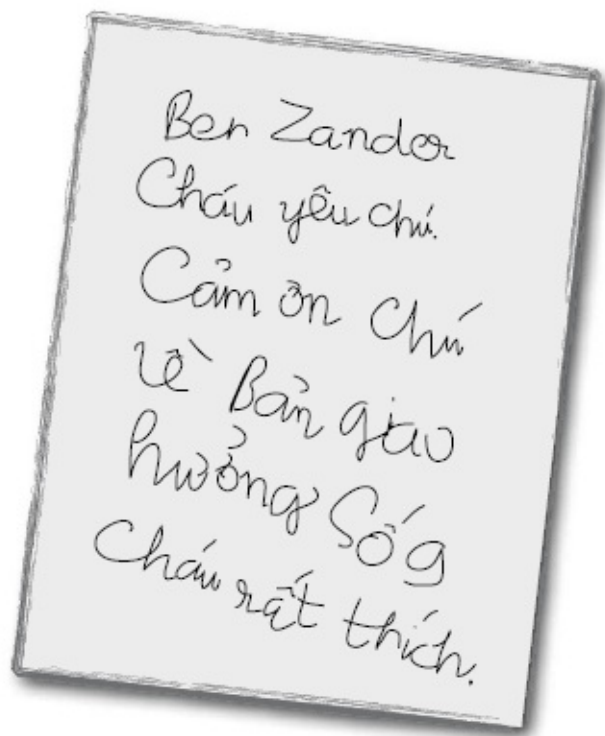 Ben Zander
Cháu yêu chú.
Cảm ơn chú
về Bản giao
hưởng Số 9
Cháu rất thích.